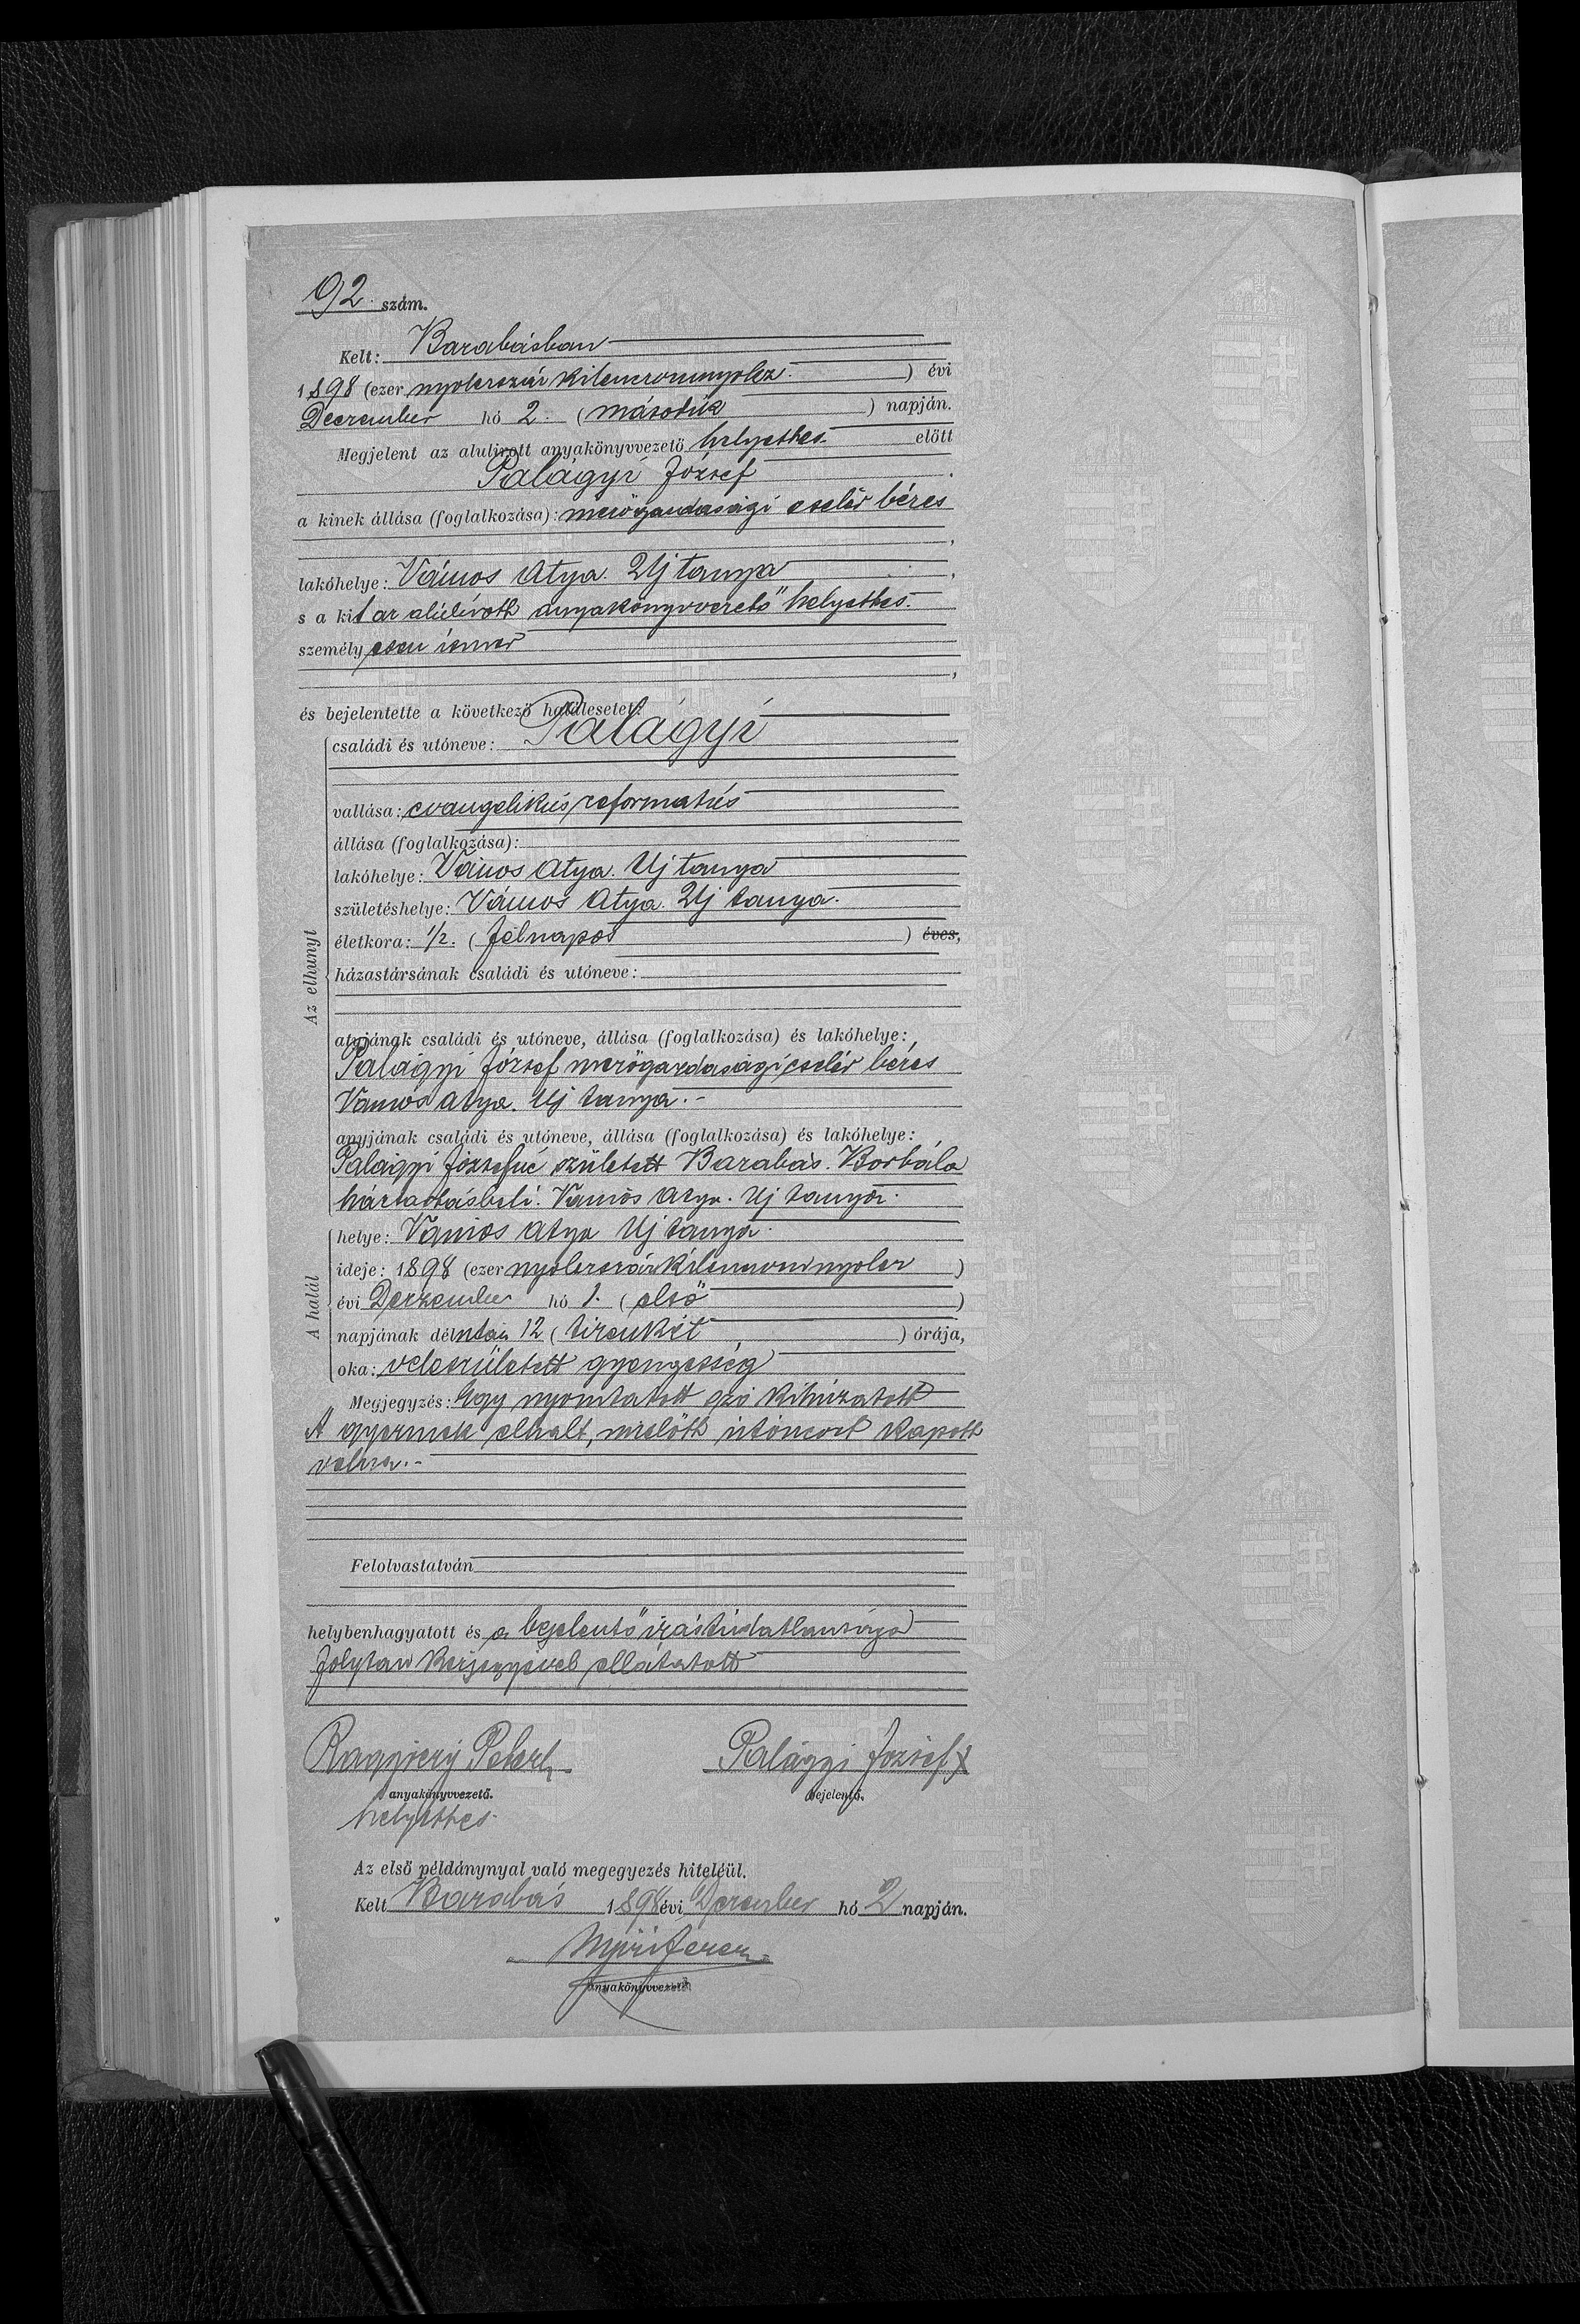 92. szám.
Kelt: Barabásban
1898 (ezer nyolczszáz kilenczvennyolcz.) évi
December hó 2. (második) napján.
Megjelent az alulirott anyakönyvvezető helyettes előtt
Palágyi József
a kinek állása (foglalkozása): mezőgazdasági cseléd béres
lakóhelye: Vámos Atya. Uj tanya,
s a kit az alúlírott anyakönyvvezető helyettes.
személyesen ismer,
és bejelentette a következő halálesetet:
Az elhunyt
családi és utóneve: Palágyi
vallása: evangelikús reformatús
állása (foglalkozása):
lakóhelye: Vámos Atya. Uj tanya
születéshelye: Vámos Atya. Uj tanya.
életkora: 1/2. (félnapos) éves,
házastársának családi és utóneve:
atyjának családi és utóneve, állása (foglalkozása) és lakóhelye:
Palágyi József mezőgazdasági cseléd béres
Vámos Atya. Uj tanya.-
anyjának családi és utóneve, állása (foglalkozása) és lakóhelye:
Palágyi Józsefné született Barabás. Borbála
háztartásbeli. Vámos Atya. Uj tanya.
A halál
helye: Vámos Atya Uj tanya.
ideje: 1898 (ezer nyolczszáz kilenczven nyolcz)
évi Deczember hó 1. (első)
napjának délután 12 (tizenkét) órája,
oka: veleszületett gyengeség
Megjegyzés: Egy nyomtatott szó kihúzatott
A gyermek elhalt, mielőtt útónevet kapott
volna.-
Felolvastatván
helybenhagyatott és a bejelentő irástúdatlansága
folytán kézjegyével ellátatott
Péter
Palágyi József x
anyakönyvvezető.
bejelentő.
helyettes.
Az első példánynyal való megegyezés hiteléül.
Kelt Barabás 1898 évi December hó 2 napján.
anyakönyvvezető